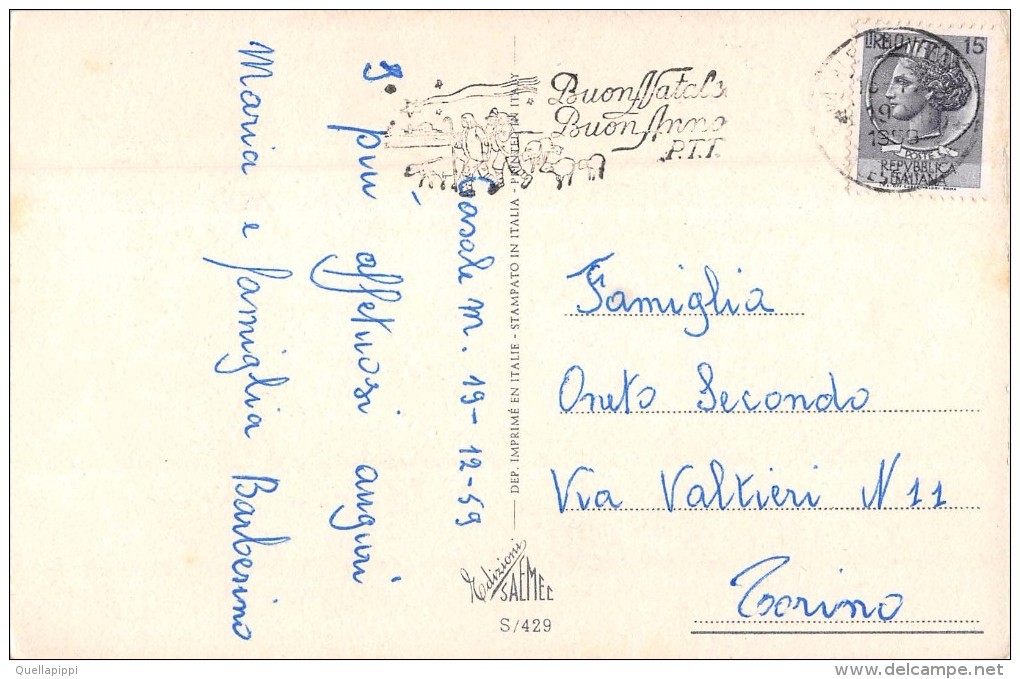 Casale M. 19-12-59
I più affettuosi auguri
Maria e famiglia Barberino
Buon Natale
Buon Anno
P.T.T.
15
1959
POSTE
REPVBBLICA
ITALIANA
DEP. IMPRIMÉ EN ITALIE - STAMPATO IN ITALIA - PRINTED IN ITALY
Famiglia
Oneto Secondo
Via Valtieri N 11
Torino
Edizioni
SAEMEC
S/429
Quellapippi
delcampe.net